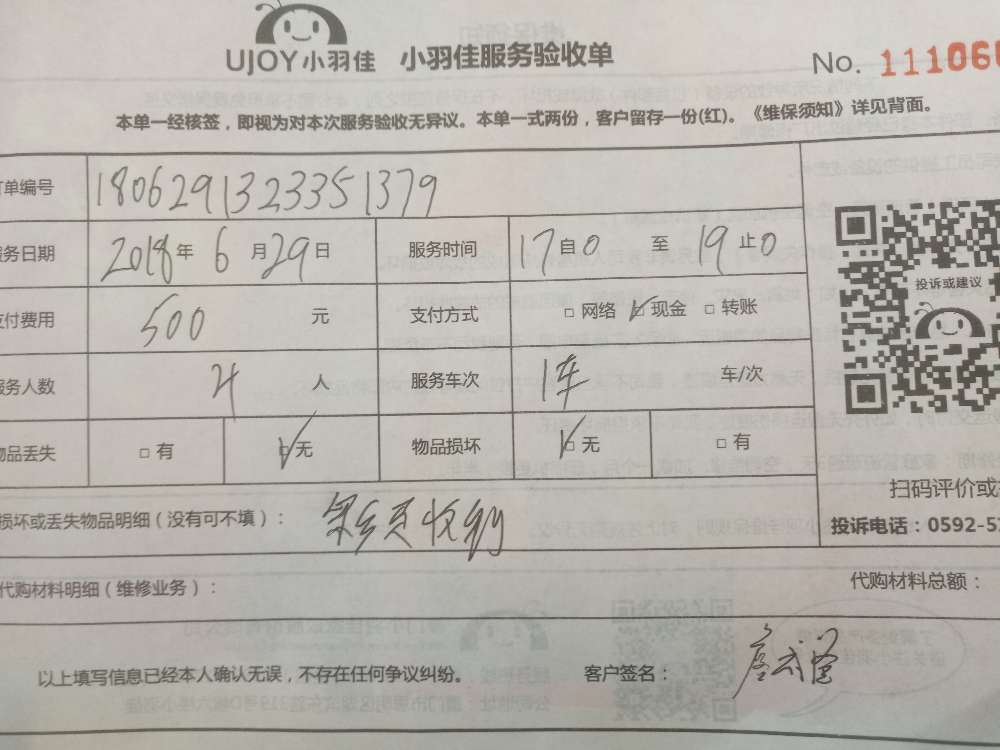 UJOY小羽佳 小羽佳服务验收单 No. 11106
本单一经核签，即视为对本次服务验收无异议。本单一式两份，客户留存一份(红)。《维保须知》详见背面。
订单编号 1806291323351379
服务日期 2018年 6月29日 服务时间 17自0 至 19止0
支付费用 500 元 支付方式 □ 网络 ☑ 现金 □ 转账
服务人数 4 人 服务车次 1车 车/次
物品丢失 □ 有 ☑ 无 物品损坏 ☑ 无 □ 有
投诉或建议
扫码评价或
损坏或丢失物品明细（没有可不填）：
投诉电话：0592-5
代购材料明细（维修业务）： 代购材料总额：
以上填写信息已经本人确认无误，不存在任何争议纠纷。 客户签名：